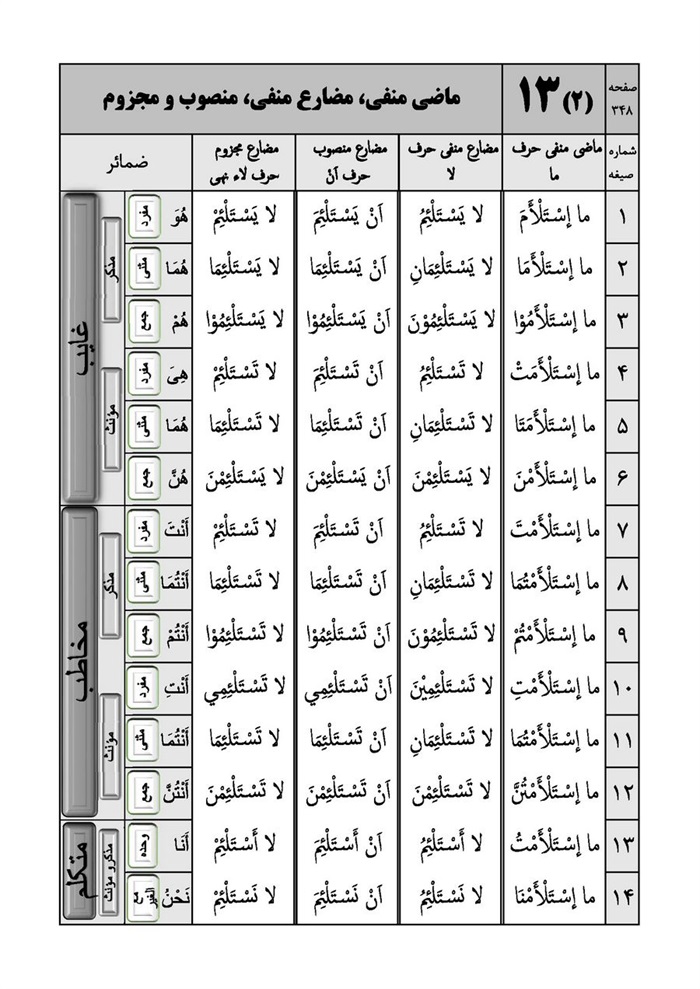 صفحه ۳۴۸ (۲) ۱۳ ماضی منفی، مضارع منفی، منصوب و مجزوم
شماره صیغه ماضی منفی حرف ما مضارع منفی حرف لا مضارع منصوب حرف اَنْ مضارع مجزوم حرف لاء نهی ضمائر
۱ ما إسْتَلْأَمَ لا يَسْتَلْئِمُ اَنْ يَسْتَلْئِمَ لا يَسْتَلْئِمْ هُوَ مفرد مذکر غایب
۲ ما إسْتَلْأَمَا لا يَسْتَلْئِمَانِ اَنْ يَسْتَلْئِمَا لا يَسْتَلْئِمَا هُمَا مثنی
۳ ما إسْتَلْأَمُوْا لا يَسْتَلْئِمُوْنَ اَنْ يَسْتَلْئِمُوْا لا يَسْتَلْئِمُوْا هُمْ جمع
۴ ما إسْتَلْأَمَتْ لا تَسْتَلْئِمُ اَنْ تَسْتَلْئِمَ لا تَسْتَلْئِمْ هِیَ مفرد مؤنث
۵ ما إسْتَلْأَمَتَا لا تَسْتَلْئِمَانِ اَنْ تَسْتَلْئِمَا لا تَسْتَلْئِمَا هُمَا مثنی
۶ ما إسْتَلْأَمْنَ لا يَسْتَلْئِمْنَ اَنْ يَسْتَلْئِمْنَ لا يَسْتَلْئِمْنَ هُنَّ جمع
۷ ما إسْتَلْأَمْتَ لا تَسْتَلْئِمُ اَنْ تَسْتَلْئِمَ لا تَسْتَلْئِمْ أَنْتَ مفرد مذکر مخاطب
۸ ما إسْتَلْأَمْتُمَا لا تَسْتَلْئِمَانِ اَنْ تَسْتَلْئِمَا لا تَسْتَلْئِمَا أَنْتُمَا مثنی
۹ ما إسْتَلْأَمْتُمْ لا تَسْتَلْئِمُوْنَ اَنْ تَسْتَلْئِمُوْا لا تَسْتَلْئِمُوْا أَنْتُمْ جمع
۱۰ ما إسْتَلْأَمْتِ لا تَسْتَلْئِمِيْنَ اَنْ تَسْتَلْئِمِي لا تَسْتَلْئِمِي أَنْتِ مفرد مؤنث
۱۱ ما إسْتَلْأَمْتُمَا لا تَسْتَلْئِمَانِ اَنْ تَسْتَلْئِمَا لا تَسْتَلْئِمَا أَنْتُمَا مثنی
۱۲ ما إسْتَلْأَمْتُنَّ لا تَسْتَلْئِمْنَ اَنْ تَسْتَلْئِمْنَ لا تَسْتَلْئِمْنَ أَنْتُنَّ جمع
۱۳ ما إسْتَلْأَمْتُ لا أَسْتَلْئِمُ اَنْ أَسْتَلْئِمَ لا أَسْتَلْئِمْ أَنَا وحده مذکر و مؤنث متکلم
۱۴ ما إسْتَلْأَمْنَا لا نَسْتَلْئِمُ اَنْ نَسْتَلْئِمَ لا نَسْتَلْئِمْ نَحْنُ مع الغیر